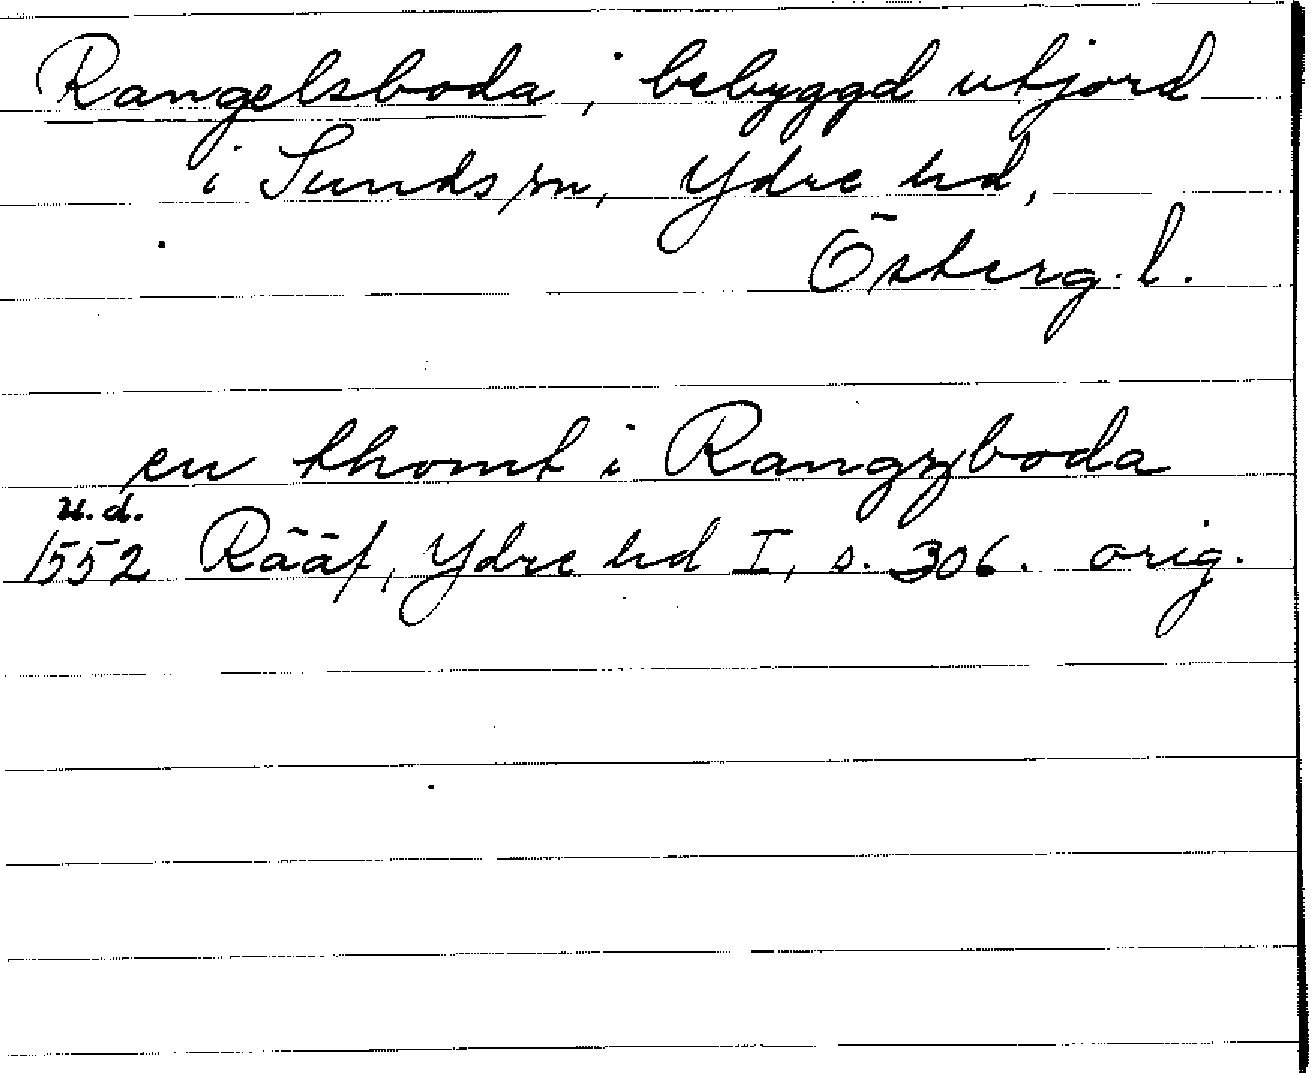 Rangelsboda, bebyggd utjord
i Sunds sn, Ydre hd,
Österg. l.
en thomt i Rangzboda
u. d.
1552 Rääf, Ydre hd I, s. 306. orig.